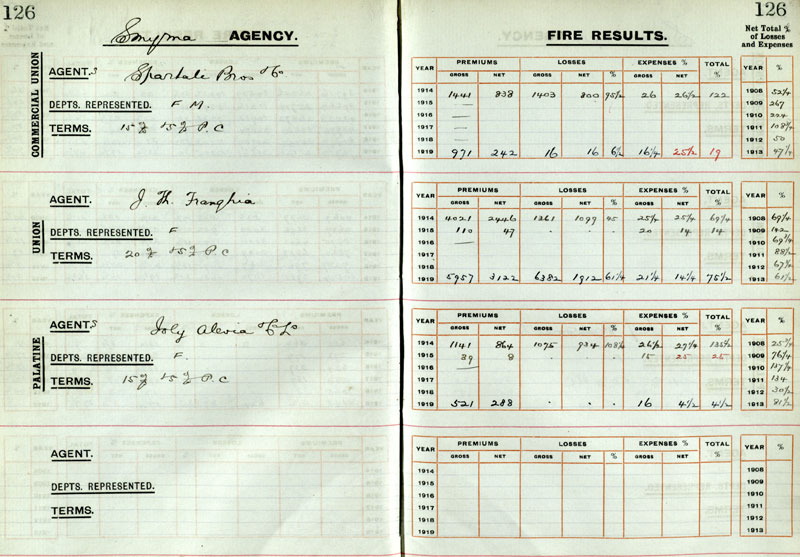 126
Smyrna AGENCY.
COMMERCIAL UNION
AGENT.s Spartali Bros & Co
DEPTS. REPRESENTED. F M.
TERMS. 15% 15% P.C
UNION
AGENT. J. Th. Franghia
DEPTS. REPRESENTED. F
TERMS. 20% 15% P.C
PALATINE
AGENTS Joly & Co
DEPTS. REPRESENTED. F.
TERMS. 15% 15% P.C
AGENT.
DEPTS. REPRESENTED.
TERMS.
126
FIRE RESULTS.
Net Total %
of Losses
and Expenses
YEAR PREMIUMS LOSSES EXPENSES % TOTAL YEAR %
GROSS NET GROSS NET % GROSS NET %
1914 1441 838 1403 800 95½ 26 26½ 122 1908 52¼
1915 — 1909 267
1916 — 1910 224
1917 — 1911 108¾
1918 — 1912 50
1919 971 242 16 16 6½ 16¼ 25½ 19 1913 47¼
YEAR PREMIUMS LOSSES EXPENSES % TOTAL YEAR %
GROSS NET GROSS NET % GROSS NET %
1914 4021 2446 1261 1099 45 25¼ 25¼ 69¼ 1908 69¼
1915 110 47 . . . 20 14 14 1909 142
1916 — 1910 69¾
1917 1911 88½
1918 1912 67½
1919 5957 3122 6382 1912 61¼ 21¼ 14¼ 75½ 1913 61½
YEAR PREMIUMS LOSSES EXPENSES % TOTAL YEAR %
GROSS NET GROSS NET % GROSS NET %
1914 1141 864 1075 934 108¼ 26½ 27¼ 135½ 1908 25¾
1915 39 8 15 25 25 1909 76¼
1916 — 1910 117¼
1917 1911 134
1918 1912 30½
1919 521 288 . . . 16 4½ 4½ 1913 81½
YEAR PREMIUMS LOSSES EXPENSES % TOTAL YEAR %
GROSS NET GROSS NET % GROSS NET %
1914 1908
1915 1909
1916 1910
1917 1911
1918 1912
1919 1913